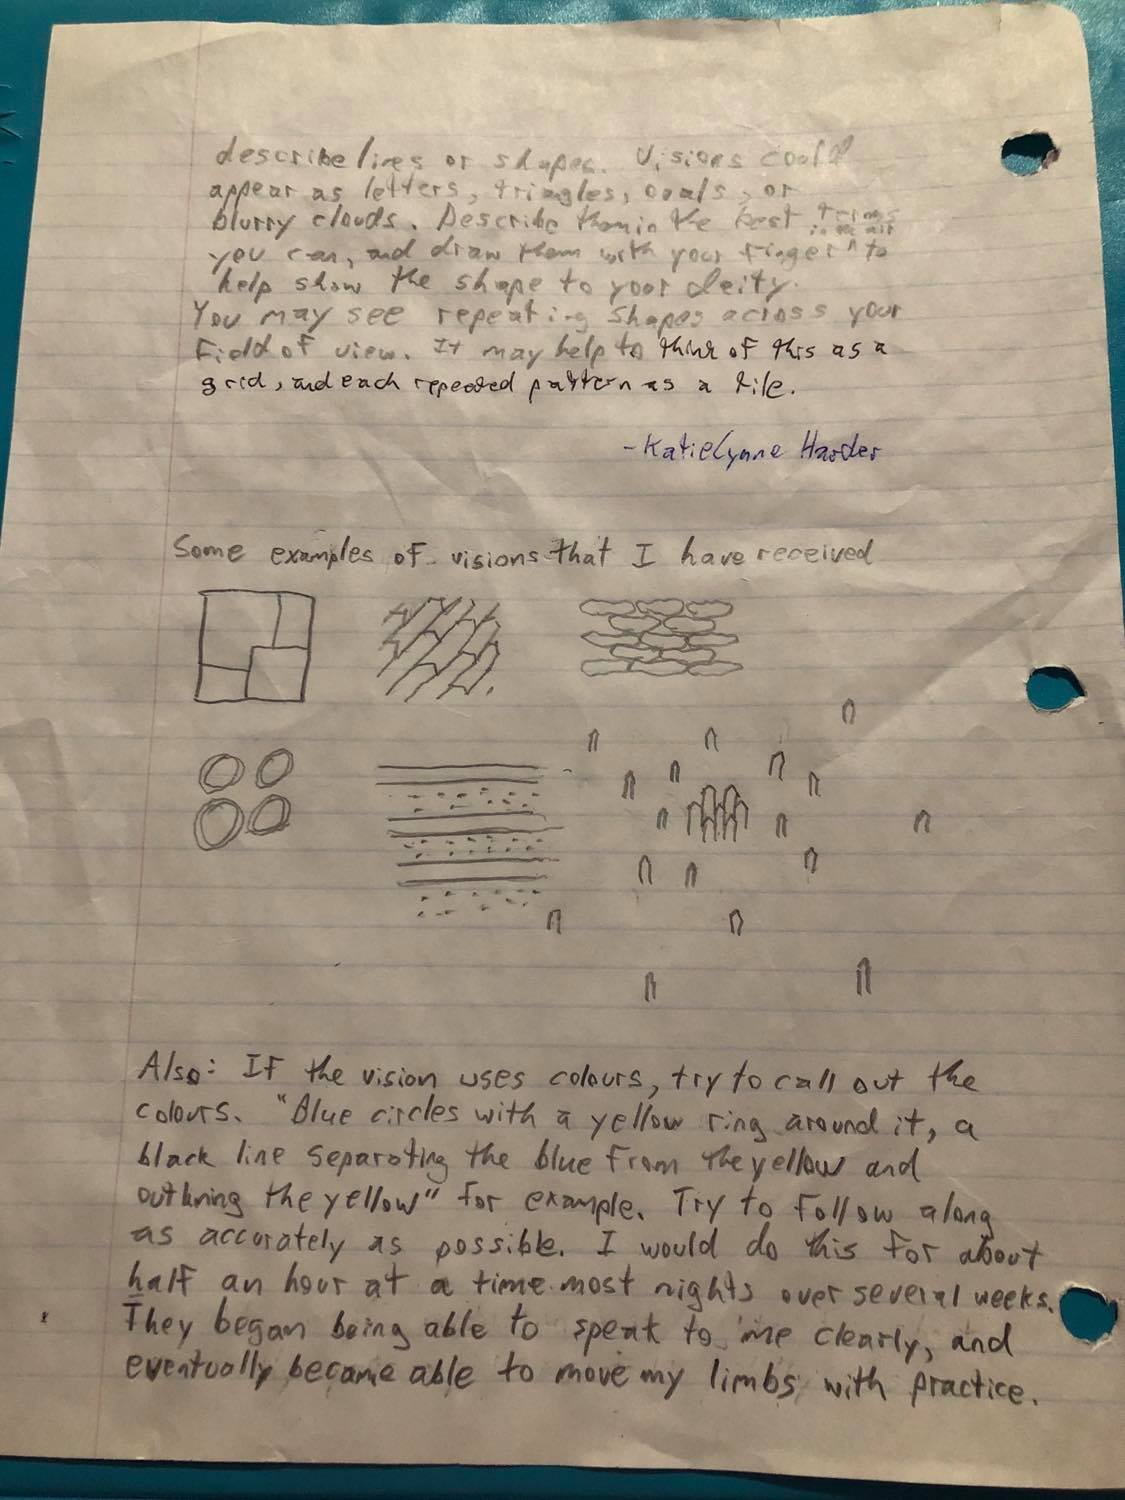 describe lines or shapes. Visions could
appear as letters, triangles, ovals, or
blurry clouds. Describe them in the best terms
you can, and draw them with your finger ^ in the air to
help show the shape to your deity.
You may see repeating shapes across your
field of view. It may help to think of this as a
grid, and each repeated pattern as a tile.
-KatieLynne Harder
Some examples of visions that I have received
Also: If the vision uses colours, try to call out the
colours. "Blue circles with a yellow ring around it, a
black line separating the blue from the yellow and
outlining the yellow" for example. Try to follow along
as accurately as possible. I would do this for about
half an hour at a time most nights over several weeks.
They began being able to speak to me clearly, and
eventually became able to move my limbs with practice.